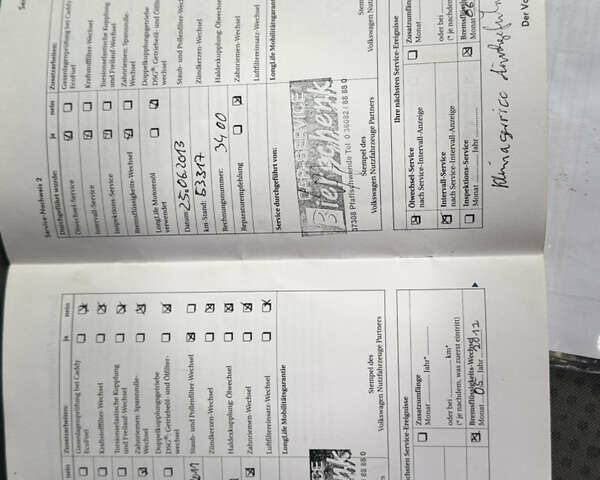 Service-Nachweis 2
Durchgeführt wurde: ja nein
Ölwechsel-Service
Intervall-Service
Inspektions-Service
Bremsflüssigkeits-Wechsel
LongLife Motorenöl
verwendet
Datum: 25.06.2013
km-Stand: 53317
Rechnungsnummer: 3400
Reparaturempfehlung
Service durchgeführt von:
37308 Pfaffschwende Tel. 0 36082 / 88 88 0
Stempel des
Volkswagen Nutzfahrzeuge Partners
Zusatzarbeiten:
Gasanlagenprüfung bei Caddy
EcoFuel
Kraftstofffilter-Wechsel
Torsionselastische Kupplung
und Freilauf-Wechsel
Zahnriemen- Spannrolle-
Wechsel
Doppelkupplungsgetriebe
DSG®: Getriebeöl- und Ölfilter-
wechsel
Staub- und Pollenfilter-Wechsel
Zündkerzen-Wechsel
Haldexkupplung: Ölwechsel
Zahnriemen-Wechsel
Luftfiltereinsatz-Wechsel
LongLife Mobilitätsgarantie
Stempel des
Volkswagen Nutzfahrzeuge
Ihre nächsten Service-Ereignisse
Ölwechsel-Service
nach Service-Intervall-Anzeige
Intervall-Service
nach Service-Intervall-Anzeige
Inspektions-Service
Monat Jahr
Zusatzumfänge
Monat
oder bei
(* je nachdem
Bremsflüssigkeits
Monat
Der Vo
nein
Zusatzarbeiten: ja nein
Gasanlagenprüfung bei Caddy
EcoFuel
Kraftstofffilter-Wechsel
Torsionselastische Kupplung
und Freilauf-Wechsel
Zahnriemen- Spannrolle-
Wechsel
Doppelkupplungsgetriebe
DSG®: Getriebeöl- und Ölfilter-
wechsel
Staub- und Pollenfilter-Wechsel
Zündkerzen-Wechsel
Haldexkupplung: Ölwechsel
Zahnriemen-Wechsel
Luftfiltereinsatz-Wechsel
LongLife Mobilitätsgarantie
88 88 0
Stempel des
Volkswagen Nutzfahrzeuge Partners
ächsten Service-Ereignisse
Zusatzumfänge
Monat Jahr*
oder bei km*
(* je nachdem, was zuerst eintritt)
Bremsflüssigkeits-Wechsel
Monat 05 Jahr 2012